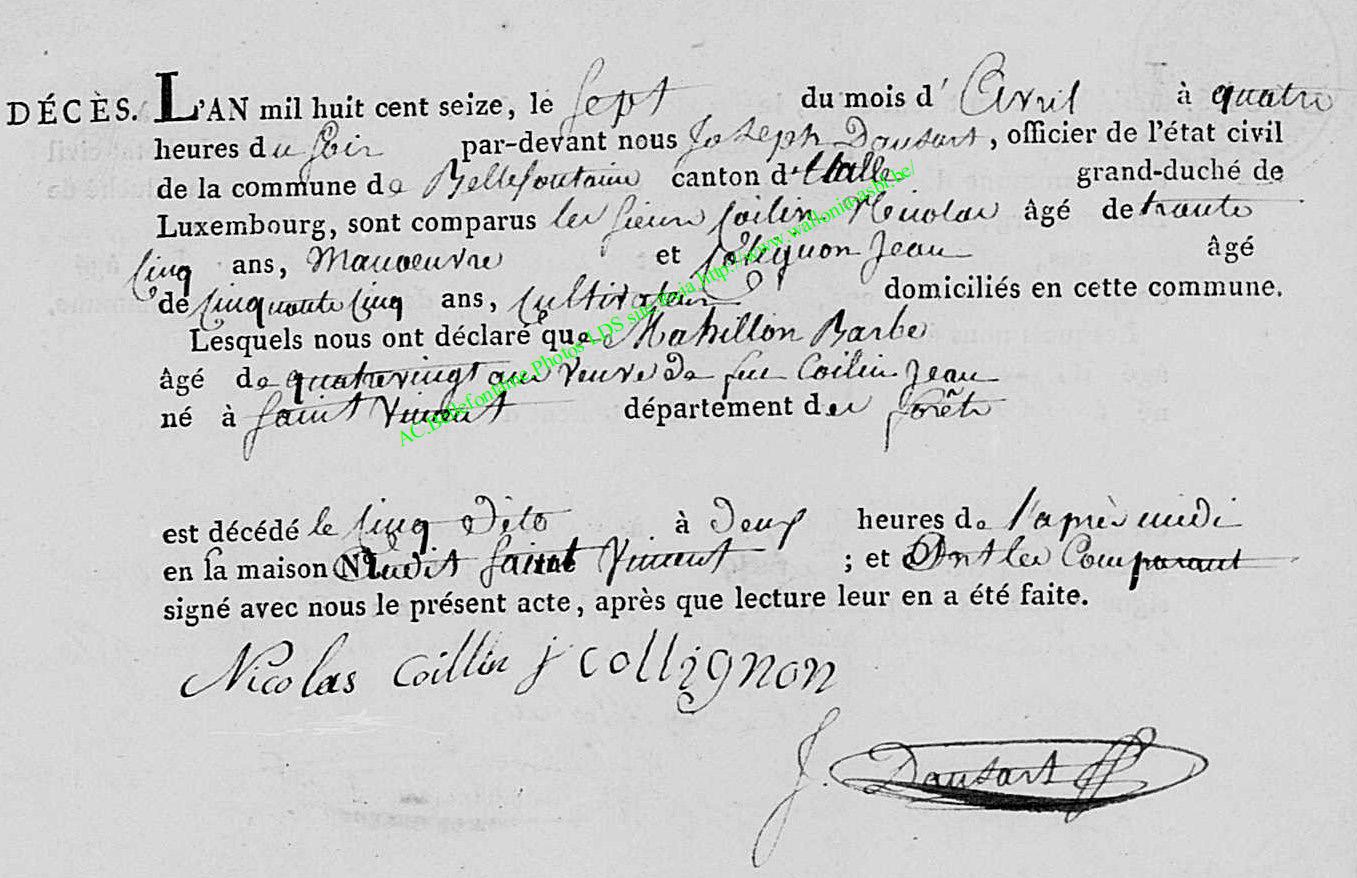 DÉCÈS. L'AN mil huit cent seize, le Sept du mois d'Avril à quatre
heures du Soir par-devant nous Joseph Dausart, officier de l'état civil
de la commune de Bellefontaine canton d'Etalle grand-duché de
Luxembourg, sont comparus les sieurs Coilin Nicolas âgé de trante
Cinq ans, Manoeuvre et Collignon Jean âgé
de Cinquante Cinq ans, Cultivateur domiciliés en cette commune.
Lesquels nous ont déclaré que Mahillon Barbe
âgé de quatrevingt ans veuve de feu Coilin Jean
né à Saint Vincent département des forêts
est décédé le Cinq Dito à Deux heures de l'après midi
en la maison N Ludit Saint Vincent ; et Ont les Comparant
signé avec nous le présent acte, après que lecture leur en a été faite.
Nicolas Coillin j Collignon
J. Dausart
AC.Bellefontaine Photos LDS sur Geneja http://www.wallonia-asbl.be/